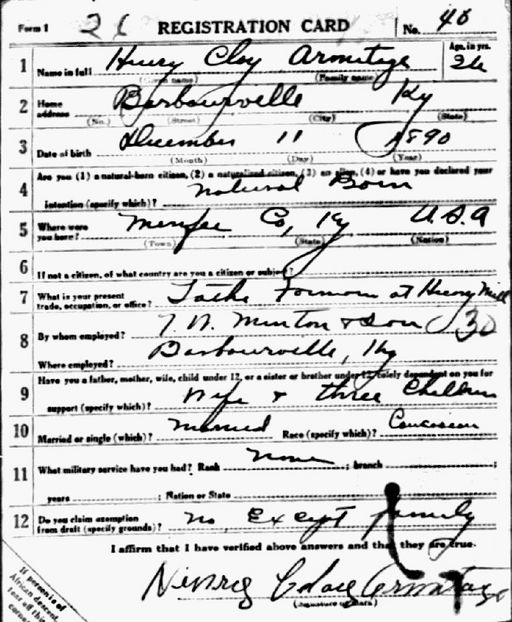 Form 1 26 REGISTRATION CARD No. 46
1 Name in full Henry Clay Armitage Age, in yrs. 26
(Given name) (Family name)
2 Home address Barbourville Ky
(No.) (Street) (City) (State)
3 Date of birth December 11 1890
(Month) (Day) (Year)
Are you (1) a natural-born citizen, (2) a naturalized citizen, (3) an alien, (4) or have you declared your
4 intention (specify which)? Natural Born
5 Where were you born? Menifee Co, Ky U.S.A
(Town) (State) (Nation)
6 If not a citizen, of what country are you a citizen or subject?
7 What is your present trade, occupation, or office? Foreman at Mill
8 By whom employed? Minton & Son 30
Where employed? Barbourville, Ky
Have you a father, mother, wife, child under 12, or a sister or brother under 12, solely dependent on you for
9 support (specify which)? Wife & three Children
10 Married or single (which)? Married Race (specify which)? Caucasian
11 What military service have you had? Rank None ; branch ;
years ; Nation or State
12 Do you claim exemption from draft (specify grounds)? No Except family
I affirm that I have verified above answers and that they are true.
Henry Clay Armitage
(Signature or mark)
If person is of
African descent,
tear off this
corner.